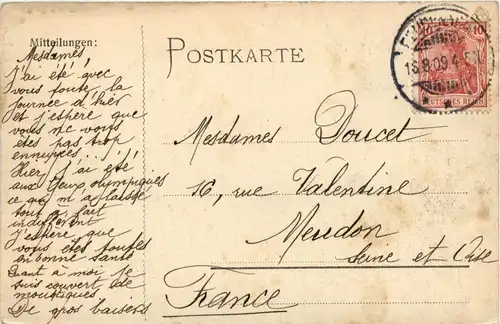 Mitteilungen:
POSTKARTE
Mesdames
J'ai été avec
vous toute la
journée d'hier
et j'espère que
vous ne vous
êtes pas trop
ennuyées...!!
Hier j'ai été
aux Jeux olympiques
ce qui m'a laissé
tout à fait
indifférent
J'espère que
vous êtes toutes
en bonne santé
Quant à moi je
suis couvert de
moustiques
De gros baisers
Mesdames Doucet
16, rue Valentine
Meudon
Seine et Oise
France
10 10
16.8.09.4-5